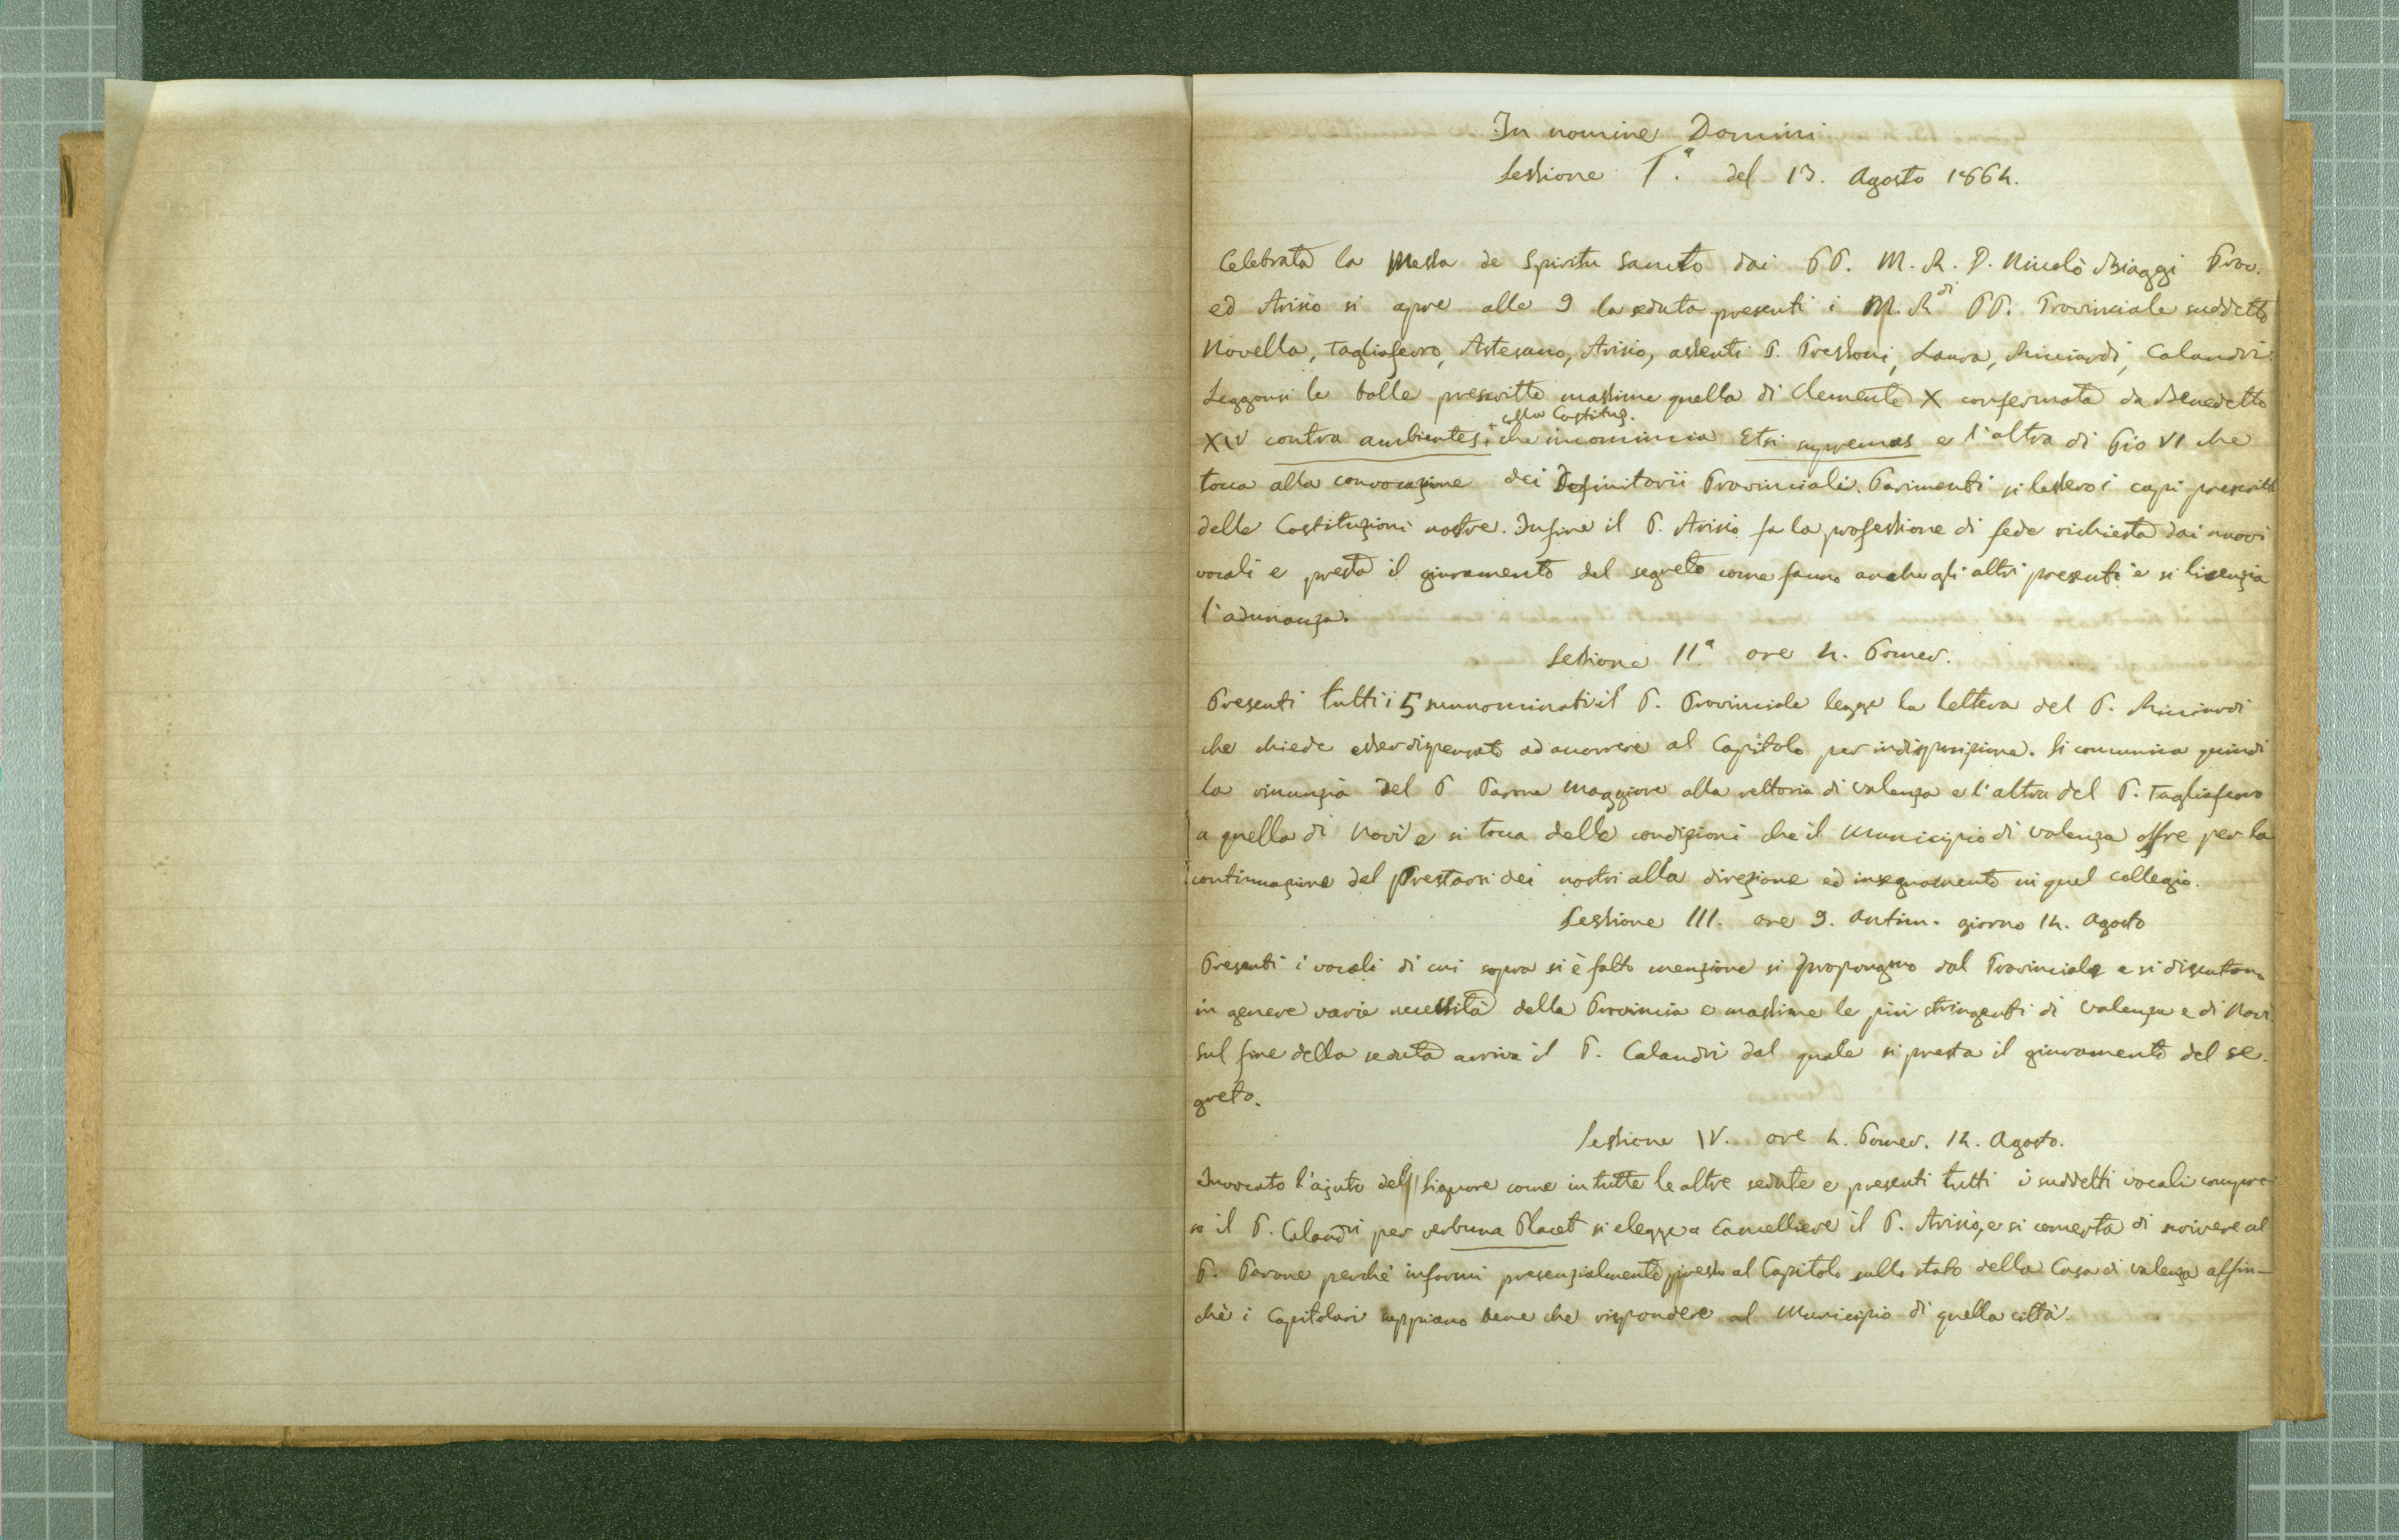 In nomine Domini
Sessione I.ª del 13. Agosto 1864.
Celebrata la Messa de Spiritu Sancto dai PP. M. R. P. Nicolò Biaggi Prov.
ed Avisio si apre alle 9 la seduta presenti i M. R.di PP. Provinciale suddetto
Novella, Tagliaferro, Astesano, Avisio, assenti P. Pressoni, Laura, Ricciardi, Calandri.
Leggonsi le bolle prescritte massime quella di Clemente X confermata da Benedetto
XIV contra ambientes, + che incomincia Etsi supremas e l'altra di Pio VI che
+ colla Costituz.
tocca alla convocazione dei Definitorii Provinciali. Parimenti si lessero i capi prescritti
delle Costituzioni nostre. Infine il P. Avisio fa la professione di fede richiesta dai nuovi
vocali e presta il giuramento del segreto come fanno anche gli altri presenti e si licenzia
l'adunanza.
Sessione II.ª ore 4. Pomer.
Presenti tutti i 5 sunnominati il P. Provinciale legge la lettera del P. Ricciardi
che chiede esser dispensato ad accorrere al Capitolo per indisposizione. Si comunica quindi
la rinunzia del P Parone Maggiore alla rettoria di Valenza e l'altra del P. Tagliaferro
a quella di Novi e si tocca delle condizioni che il Municipio di Valenza offre per la
continuazione del prestarsi dei nostri alla direzione ed insegnamento in quel collegio.
Sessione III. ore 9. Antim. giorno 14. Agosto
Presenti i vocali di cui sopra si è fatto menzione si propongono dal Provinciale e si discutono
in genere varie necessità della Provincia e massime le più stringenti di Valenza e di Novi.
Sul fine della seduta arriva il P. Calandri dal quale si presta il giuramento del se-
greto.
Sessione IV. ore 4. Pomer. 14. Agosto.
Invocato l'ajuto del Signore come in tutte le altre sedute e presenti tutti i suddetti vocali compre-
so il P. Calandri per verbum Placet si elegge a Cancelliere il P. Avisio, e si concerta di scrivere al
P. Parone perchè informi presenzialmente presso al Capitolo sullo stato della Casa di Valenza affin-
chè i Capitolari sappiano bene che rispondere al Municipio di quella città.